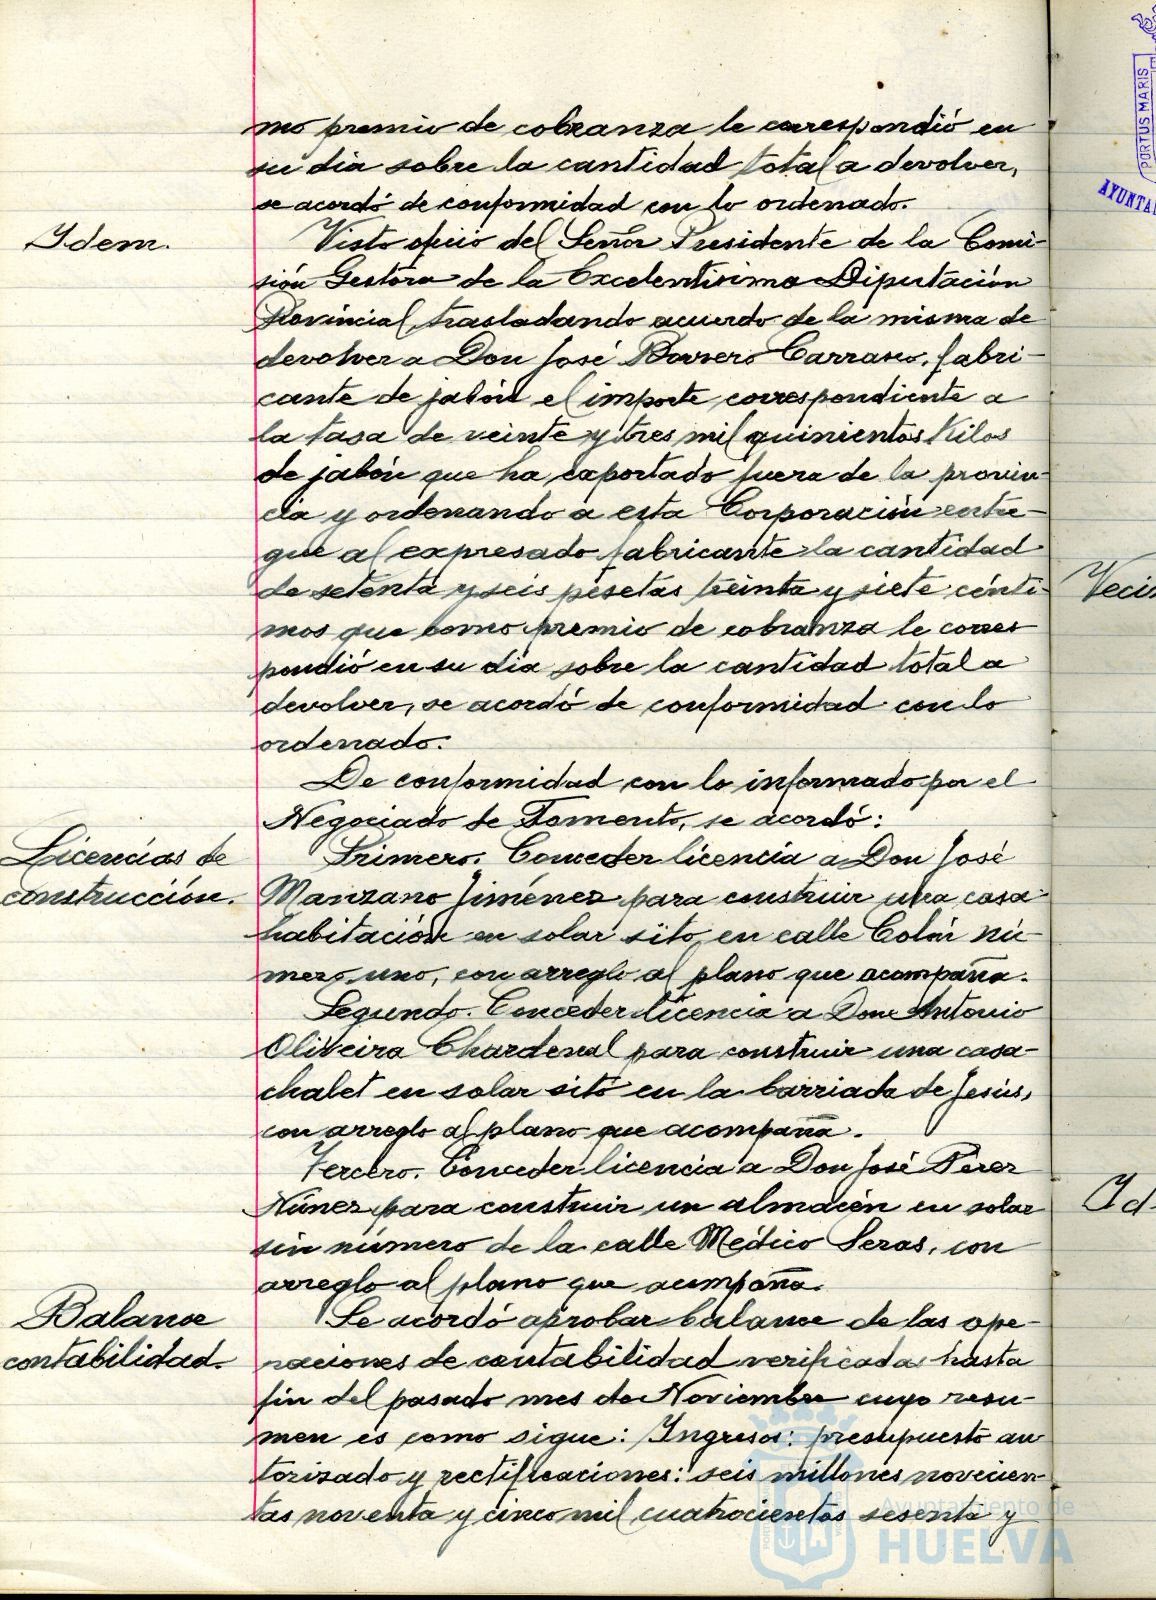 mo premio de cobranza le correspondió en
su dia sobre la cantidad total a devolver,
se acordó de conformidad con lo ordenado.
Idem.
Visto oficio del Señor Presidente de la Comi-
sión Gestora de la Excelentisima Diputación
Provincial, trasladando acuerdo de la misma de
devolver a Don José Borrero Carrasco, fabri-
cante de jabón el importe correspondiente a
la tasa de veinte y tres mil quinientos Kilos
de jabón que ha exportado fuera de la provin-
cia y ordenando a esta Corporación entre-
gue al expresado fabricante la cantidad
de setenta y seis pesetas treinta y siete cénti-
mos que como premio de cobranza le corres
pondió en su dia sobre la cantidad total a
devolver, se acordó de conformidad con lo
ordenado.
De conformidad con lo informado por el
Negociado de Fomento, se acordó:
Licencias de
construcción.
Primero. Conceder licencia a Don José
Manzano Jiménez para construir una casa
habitación en solar sito en calle Colón nú-
mero uno, con arreglo al plano que acompaña.
Segundo. Conceder licencia a Don Antonio
Oliveira Chardenal para construir una casa-
chalet en solar sito en la barriada de Jesús,
con arreglo al plano que acompaña.
Tercero. Conceder licencia a Don José Pérez
Núnez para construir un almacén en solar
sin número de la calle Médico Seras, con
arreglo al plano que acompaña.
Balance
contabilidad.
Se acordó aprobar balance de las ope-
raciones de contabilidad verificadas hasta
fin del pasado mes de Noviembre cuyo resu-
men es como sigue: Ingresos: presupuesto au
torizado y rectificaciones: seis millones novecien-
tas noventa y cinco mil cuatrocientas sesenta y
Ayuntamiento de
HUELVA
PORTUS MARIS